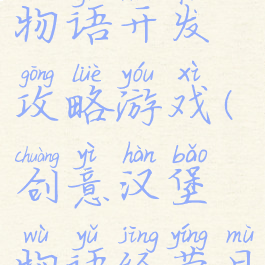 物语开发
gōng lüè yóu xì
攻略游戏(
chuàng yì hàn bǎo
创意汉堡
wù yǔ jīng yíng mù
物语经营目